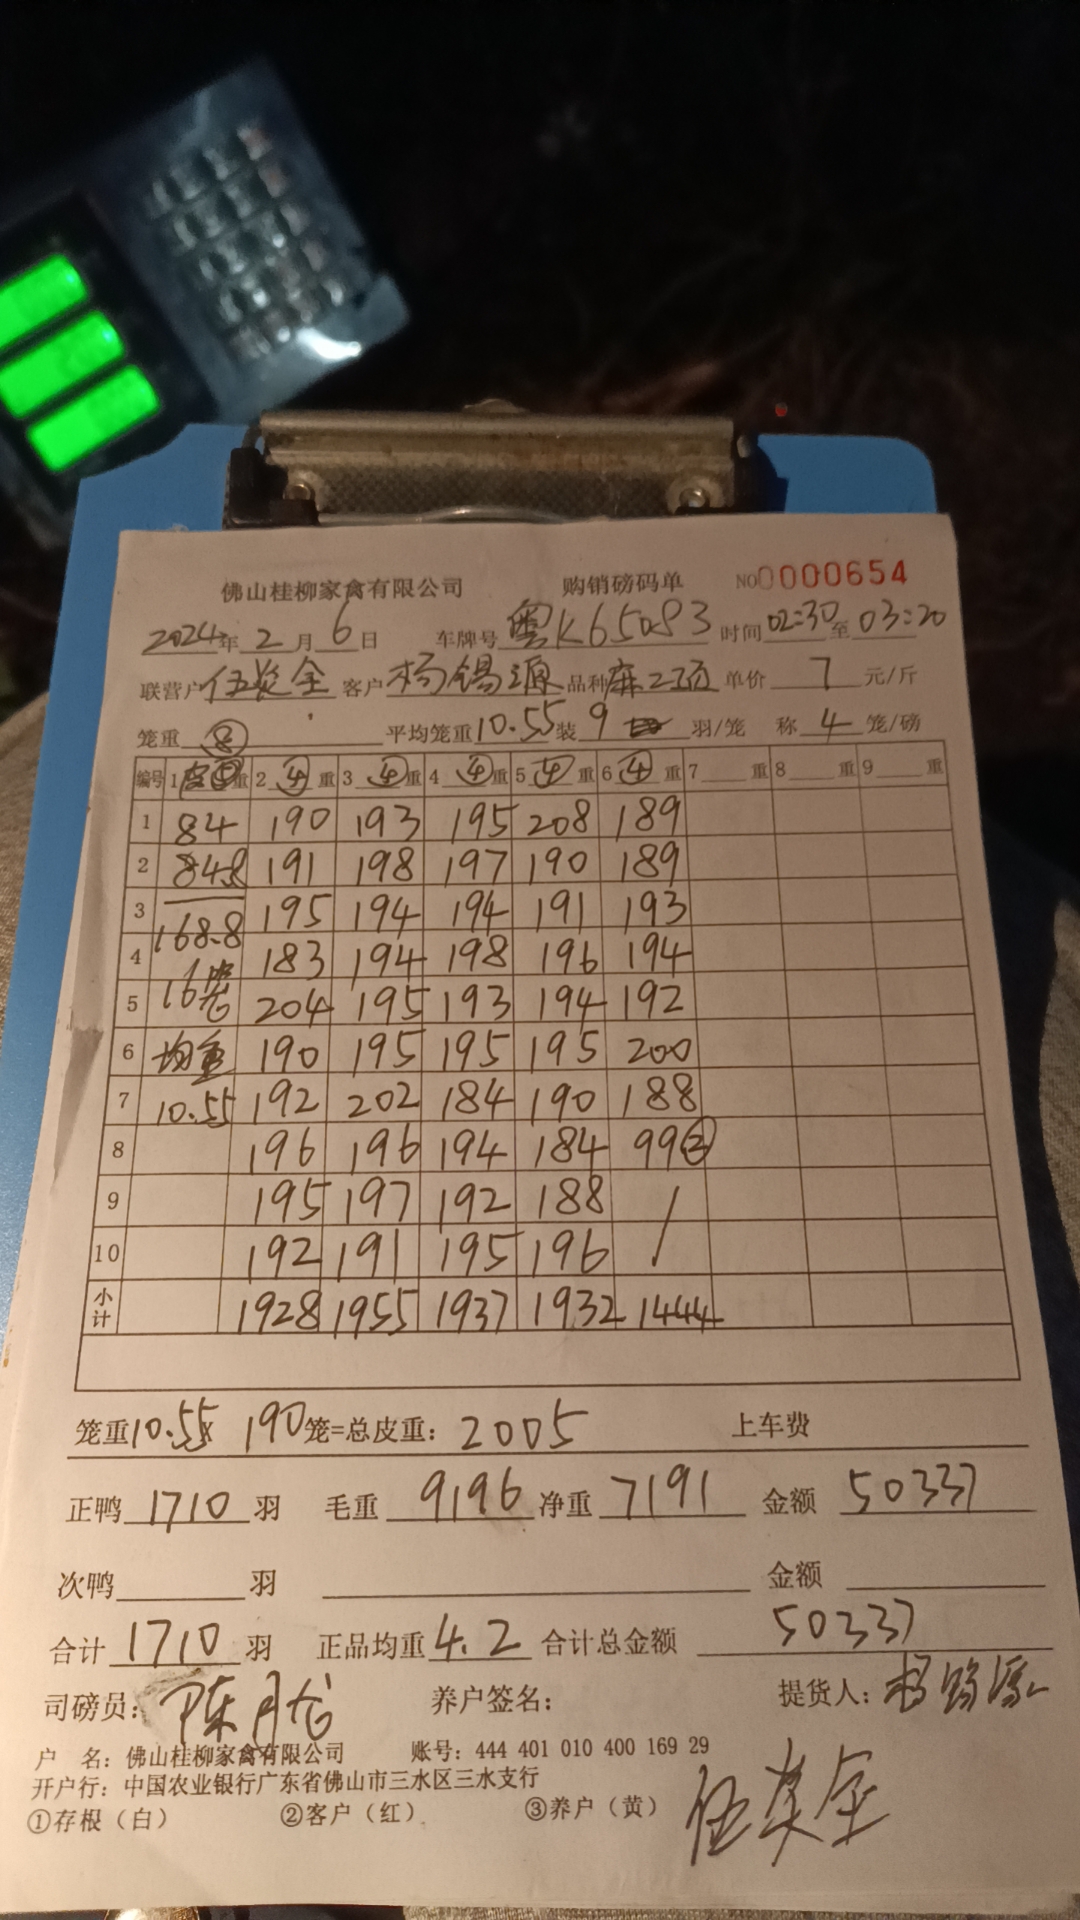 佛山桂柳家禽有限公司 购销磅码单 NO0000654
2024年2月6日 车牌号 粤K65083 时间 02:30至03:20
联营户 伍英全 客户 杨锡源 品种 麻二项 单价 7 元/斤
笼重 ⑧ 平均笼重 10.55 装 9 羽/笼 称 4 笼/磅
编号 1 重 2 ④ 重 3 ④ 重 4 ④ 重 5 ④ 重 6 ④ 重 7 重 8 重 9 重
1 84 190 193 195 208 189
2 84.8 191 198 197 190 189
3 168.8 195 194 194 191 193
4 16笼 183 194 198 196 194
5 204 195 193 194 192
6 均重 190 195 195 195 200
7 10.55 192 202 184 190 188
8 196 196 194 184 99②
9 195 197 192 188 /
10 192 191 195 196 /
小计 1928 1955 1937 1932 1444
笼重10.55x 190笼=总皮重：2005 上车费
正鸭 1710 羽 毛重 9196 净重 7191 金额 50337
次鸭 羽 金额
合计 1710 羽 正品均重 4.2 合计总金额 50337
司磅员： 陈月 养户签名： 提货人：杨锡源
户 名：佛山桂柳家禽有限公司 账号：444 401 010 400 169 29
开户行：中国农业银行广东省佛山市三水区三水支行
①存根（白） ②客户（红） ③养户（黄） 伍英全